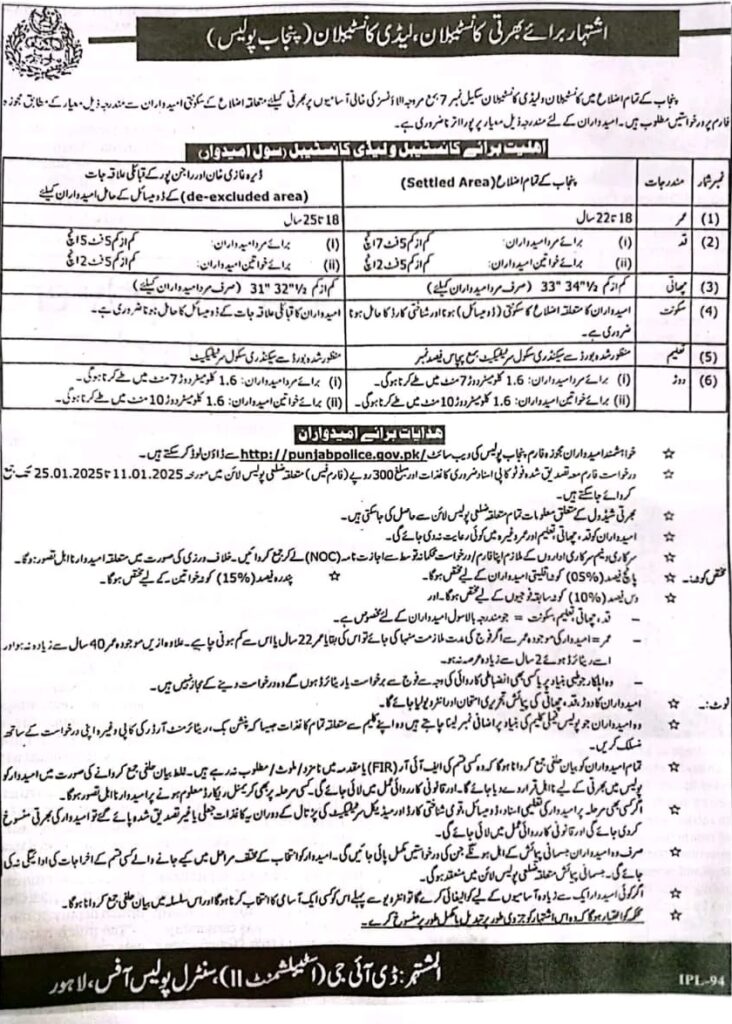 اشتہار برائے بھرتی کانسٹیبلان، لیڈی کانسٹیبلان (پنجاب پولیس)
پنجاب کے تمام اضلاع میں کانسٹیبلان و لیڈی کانسٹیبلان سکیل نمبر 7 بمع مروجہ الاؤنسز کی خالی آسامیوں پر بھرتی کیلئے متعلقہ اضلاع کے سکونتی امیدواران سے مندرجہ ذیل معیار کے مطابق مجوزہ
فارم پر درخواستیں مطلوب ہیں۔ امیدواران کے لئے مندرجہ ذیل معیار پر پورا اترنا ضروری ہے۔
اہلیت برائے کانسٹیبل و لیڈی کانسٹیبل (رسول امیدوار)
نمبر شمار مندرجات پنجاب کے تمام اضلاع (Settled Area) ڈیرہ غازی خان اور راجن پور کے قبائلی علاقہ جات
(de-excluded area) کے ڈومیسائل کے حامل امیدواران کیلئے
(1) عمر 18 تا 22 سال 18 تا 25 سال
(2) قد (i) برائے مرد امیدواران: کم از کم 5 فٹ 7 انچ (i) برائے مرد امیدواران: کم از کم 5 فٹ 5 انچ
(ii) برائے خواتین امیدواران: کم از کم 5 فٹ 2 انچ (ii) برائے خواتین امیدواران: کم از کم 5 فٹ 2 انچ
(3) چھاتی کم از کم 33" 34½" (صرف مرد امیدواران کیلئے) کم از کم 31" 32½" (صرف مرد امیدواران کیلئے)
(4) سکونت امیدواران کا متعلقہ اضلاع کا سکونتی (ڈومیسائل) ہونا اور شناختی کارڈ کا حامل ہونا امیدواران کا قبائلی علاقہ جات کے ڈومیسائل کا حامل ہونا ضروری ہے۔
ضروری ہے۔
(5) تعلیم منظور شدہ بورڈ سے سیکنڈری سکول سرٹیفکیٹ بمع پچاس فیصد نمبر منظور شدہ بورڈ سے سیکنڈری سکول سرٹیفکیٹ
(6) دوڑ (i) برائے مرد امیدواران: 1.6 کلومیٹر دوڑ 7 منٹ میں طے کرنا ہوگی۔ (i) برائے مرد امیدواران: 1.6 کلومیٹر دوڑ 7 منٹ میں طے کرنا ہوگی۔
(ii) برائے خواتین امیدواران: 1.6 کلومیٹر دوڑ 10 منٹ میں طے کرنا ہوگی۔ (ii) برائے خواتین امیدواران: 1.6 کلومیٹر دوڑ 10 منٹ میں طے کرنا ہوگی۔
ھدایات برائے امیدواران
☆ خواہشمند امیدواران مجوزہ فارم پنجاب پولیس کی ویب سائٹ http://punjabpolice.gov.pk/ سے ڈاؤن لوڈ کر سکتے ہیں۔
☆ درخواست فارم معہ تصدیق شدہ فوٹو کاپی اسناد ضروری کاغذات اور مبلغ 300 روپے (فارم فیس) متعلقہ ضلعی پولیس لائن میں مورخہ 11.01.2025 تا 25.01.2025 تک جمع
کروائے جا سکتے ہیں۔
☆ بھرتی شیڈول کے متعلق معلومات تمام متعلقہ ضلعی پولیس لائن سے حاصل کی جا سکتی ہیں۔
☆ امیدواران کو قد، چھاتی، تعلیم اور عمر وغیرہ میں کوئی رعایت نہ دی جائے گی۔
☆ سرکاری و نیم سرکاری اداروں کے ملازم اپنا فارم/درخواست محکمانہ توسط سے اجازت نامہ (NOC) لے کر جمع کروائیں۔ خلاف ورزی کی صورت میں متعلقہ امیدوار نااہل تصور ہوگا۔
مختص کوٹہ:۔ ☆ پانچ فیصد (05%) کوٹہ اقلیتی امیدواران کے لیے مختص ہوگا۔ ☆ پندرہ فیصد (15%) کوٹہ خواتین کے لیے مختص ہوگا۔
☆ دس فیصد (10%) کوٹہ سابقہ فوجیوں کے لیے مختص ہوگا۔ اور
- قد، چھاتی، تعلیم، سکونت = جو مندرجہ بالا سول امیدواران کے لئے مخصوص ہے۔
- عمر = امیدوار کی موجودہ عمر سے اگر فوج کی مدت ملازمت منہا کی جائے تو اس کی بقایا عمر 22 سال یا اس سے کم ہونی چاہیے۔ علاوہ ازیں موجودہ عمر 40 سال سے زیادہ نہ ہو اور
اسے ریٹائرڈ ہوئے 2 سال سے زیادہ عرصہ نہ ہو۔
- وہ اہلکار جو طبی بنیاد پر یا کسی بھی انضباطی کارروائی کی وجہ سے فوج سے برخواست یا ریٹائرڈ ہوں گے وہ درخواست دینے کے مجاز نہیں ہیں۔
نوٹ:۔ ☆ امیدواران کا دوڑ، قد، چھاتی کی پیمائش، تحریری امتحان اور انٹرویو لیا جائے گا۔
☆ وہ امیدوار جو پولیس فیملی کلیم کی بنیاد پر اضافی نمبر لینا چاہتے ہیں وہ اپنے کلیم سے متعلقہ تمام کاغذات جیسا کہ پنشن بک، ریٹائرمنٹ آرڈر کی کاپی وغیرہ اپنی درخواست کے ساتھ
منسلک کریں۔
☆ تمام امیدواران کو بیان حلفی جمع کروانا ہوگا کہ وہ کسی قسم کی ایف آئی آر (FIR) یا مقدمہ میں نامزد/ملوث/مطلوب نہ رہے ہیں۔ غلط بیان حلفی جمع کروانے کی صورت میں امیدوار کو
پولیس میں بھرتی کے لیے نااہل قرار دے دیا جائے گا۔ اور قانونی کارروائی عمل میں لائی جائے گی۔ کسی مرحلہ پر بھی کریمنل ریکارڈ معلوم ہونے پر امیدوار نااہل تصور ہوگا۔
☆ اگر کسی بھی مرحلہ پر امیدوار کی تعلیمی اسناد، ڈومیسائل، قومی شناختی کارڈ اور میڈیکل سرٹیفکیٹ کی پڑتال کے دوران یہ کاغذات جعلی یا غیر تصدیق شدہ پائے گئے تو امیدوار کی بھرتی منسوخ
کر دی جائے گی اور قانونی کارروائی عمل میں لائی جائے گی۔
☆ صرف وہ امیدواران جسمانی پیمائش کے اہل ہونگے جن کی درخواستیں مکمل پائی جائیں گی۔ امیدوار کو انتخاب کے مختلف مراحل میں کیے جانے والے کسی قسم کے اخراجات کی ادائیگی نہ کی
جائے گی۔ جسمانی پیمائش متعلقہ پولیس لائن میں منعقد ہوگی۔
☆ اگر کوئی امیدوار ایک سے زیادہ آسامیوں کے لیے کوالیفائی کرے گا تو انٹرویو سے پہلے اس کو کسی ایک آسامی کا انتخاب کرنا ہوگا اور اس سلسلہ میں بیان حلفی جمع کروانا ہوگا۔
☆ محکمہ کو اختیار ہوگا کہ وہ اس اشتہار کو جزوی طور پر تبدیل یا مکمل طور پر منسوخ کرے۔
المشتہر: ڈی آئی جی (اسٹیبلشمنٹ II)، سنٹرل پولیس آفس، لاہور
IPL-94